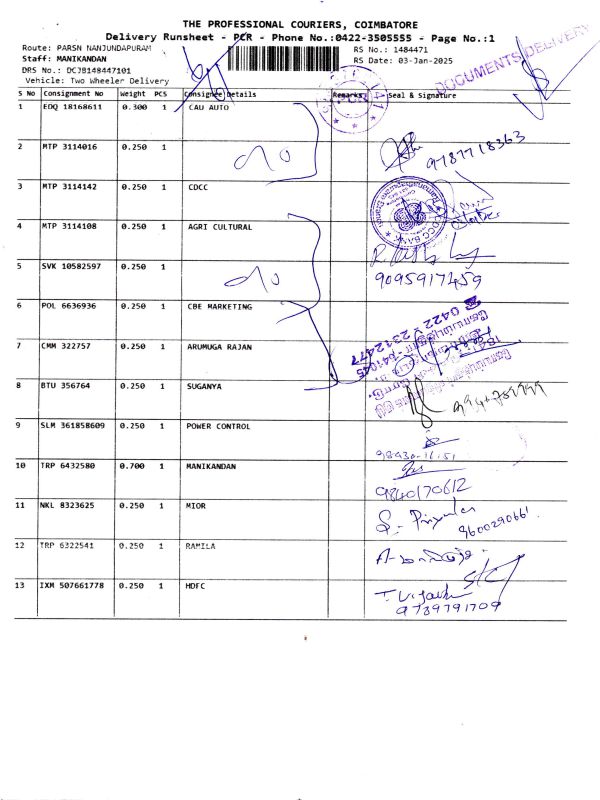 THE PROFESSIONAL COURIERS, COIMBATORE
Delivery Runsheet - PCR - Phone No.:0422-3505555 - Page No.:1
Route: PARSN NANJUNDAPURAM
RS No.: 1484471
Staff: MANIKANDAN
RS Date: 03-Jan-2025
DRS No.: DCJB148447101
Vehicle: Two Wheeler Delivery
DOCUMENTS DELIVERY
S No Consignment No Weight PCS Consignee Details Remarks Seal & Signature
1 EDQ 18168611 0.300 1 CAU AUTO
2 MTP 3114016 0.250 1
9787718363
3 MTP 3114142 0.250 1 CDCC
4 MTP 3114108 0.250 1 AGRI CULTURAL
5 SVK 10582597 0.250 1
9095917459
6 POL 6636936 0.250 1 CBE MARKETING
0422 2312477
7 CMM 322757 0.250 1 ARUMUGA RAJAN
8 BTU 356764 0.250 1 SUGANYA
9 SLM 361858609 0.250 1 POWER CONTROL
98430-16151
10 TRP 6432580 0.700 1 MANIKANDAN
9840170612
11 NKL 8323625 0.250 1 MIOR
S. Priya
9600290661
12 TRP 6322541 0.250 1 RAMILA
13 IXM 507661778 0.250 1 HDFC
9789791709